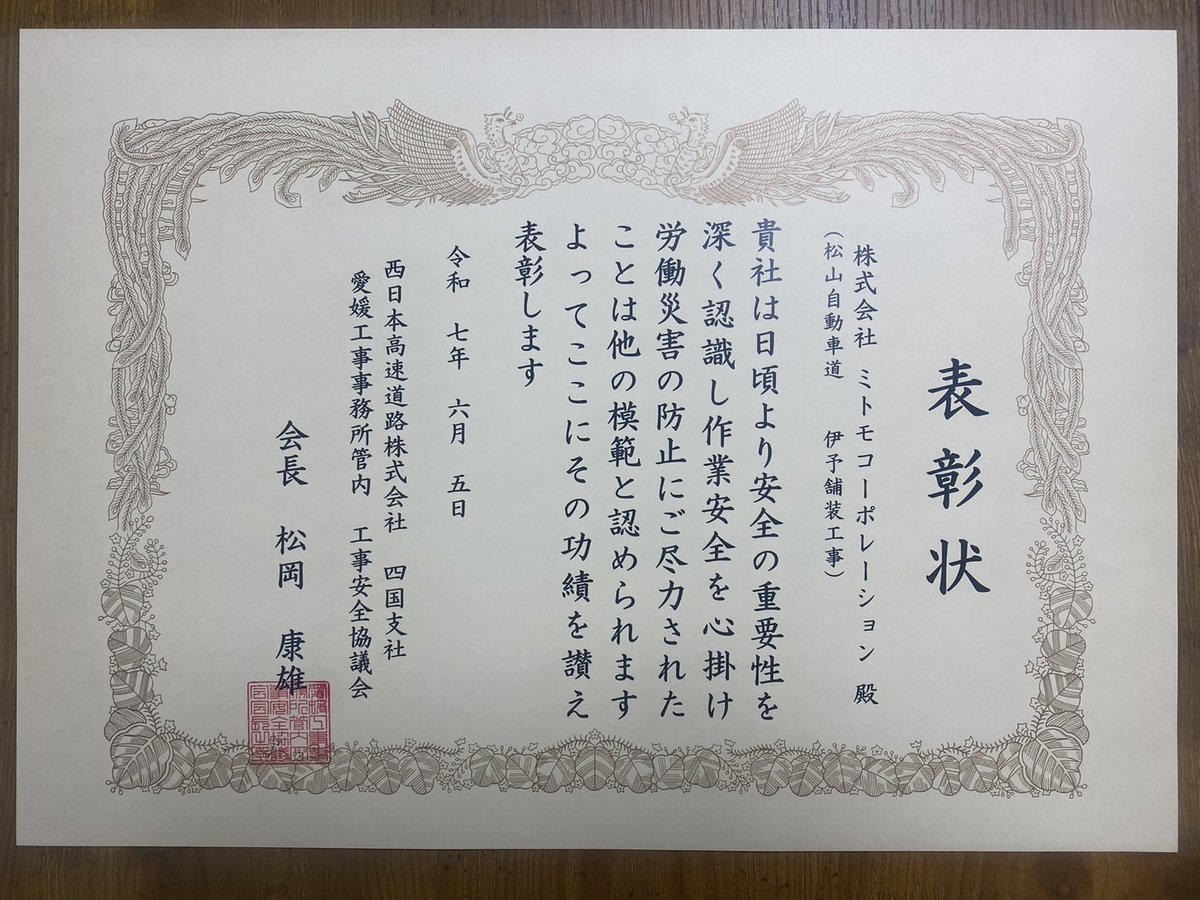 表彰状
株式会社 ミトモコーポレーション 殿
(松山自動車道 伊予舗装工事)
貴社は日頃より安全の重要性を
深く認識し作業安全を心掛け
労働災害の防止にご尽力された
ことは他の模範と認められます
よってここにその功績を讃え
表彰します
令和 七年 六月 五日
西日本高速道路株式会社 四国支社
愛媛工事事務所管内 工事安全協議会
会長 松岡 康雄